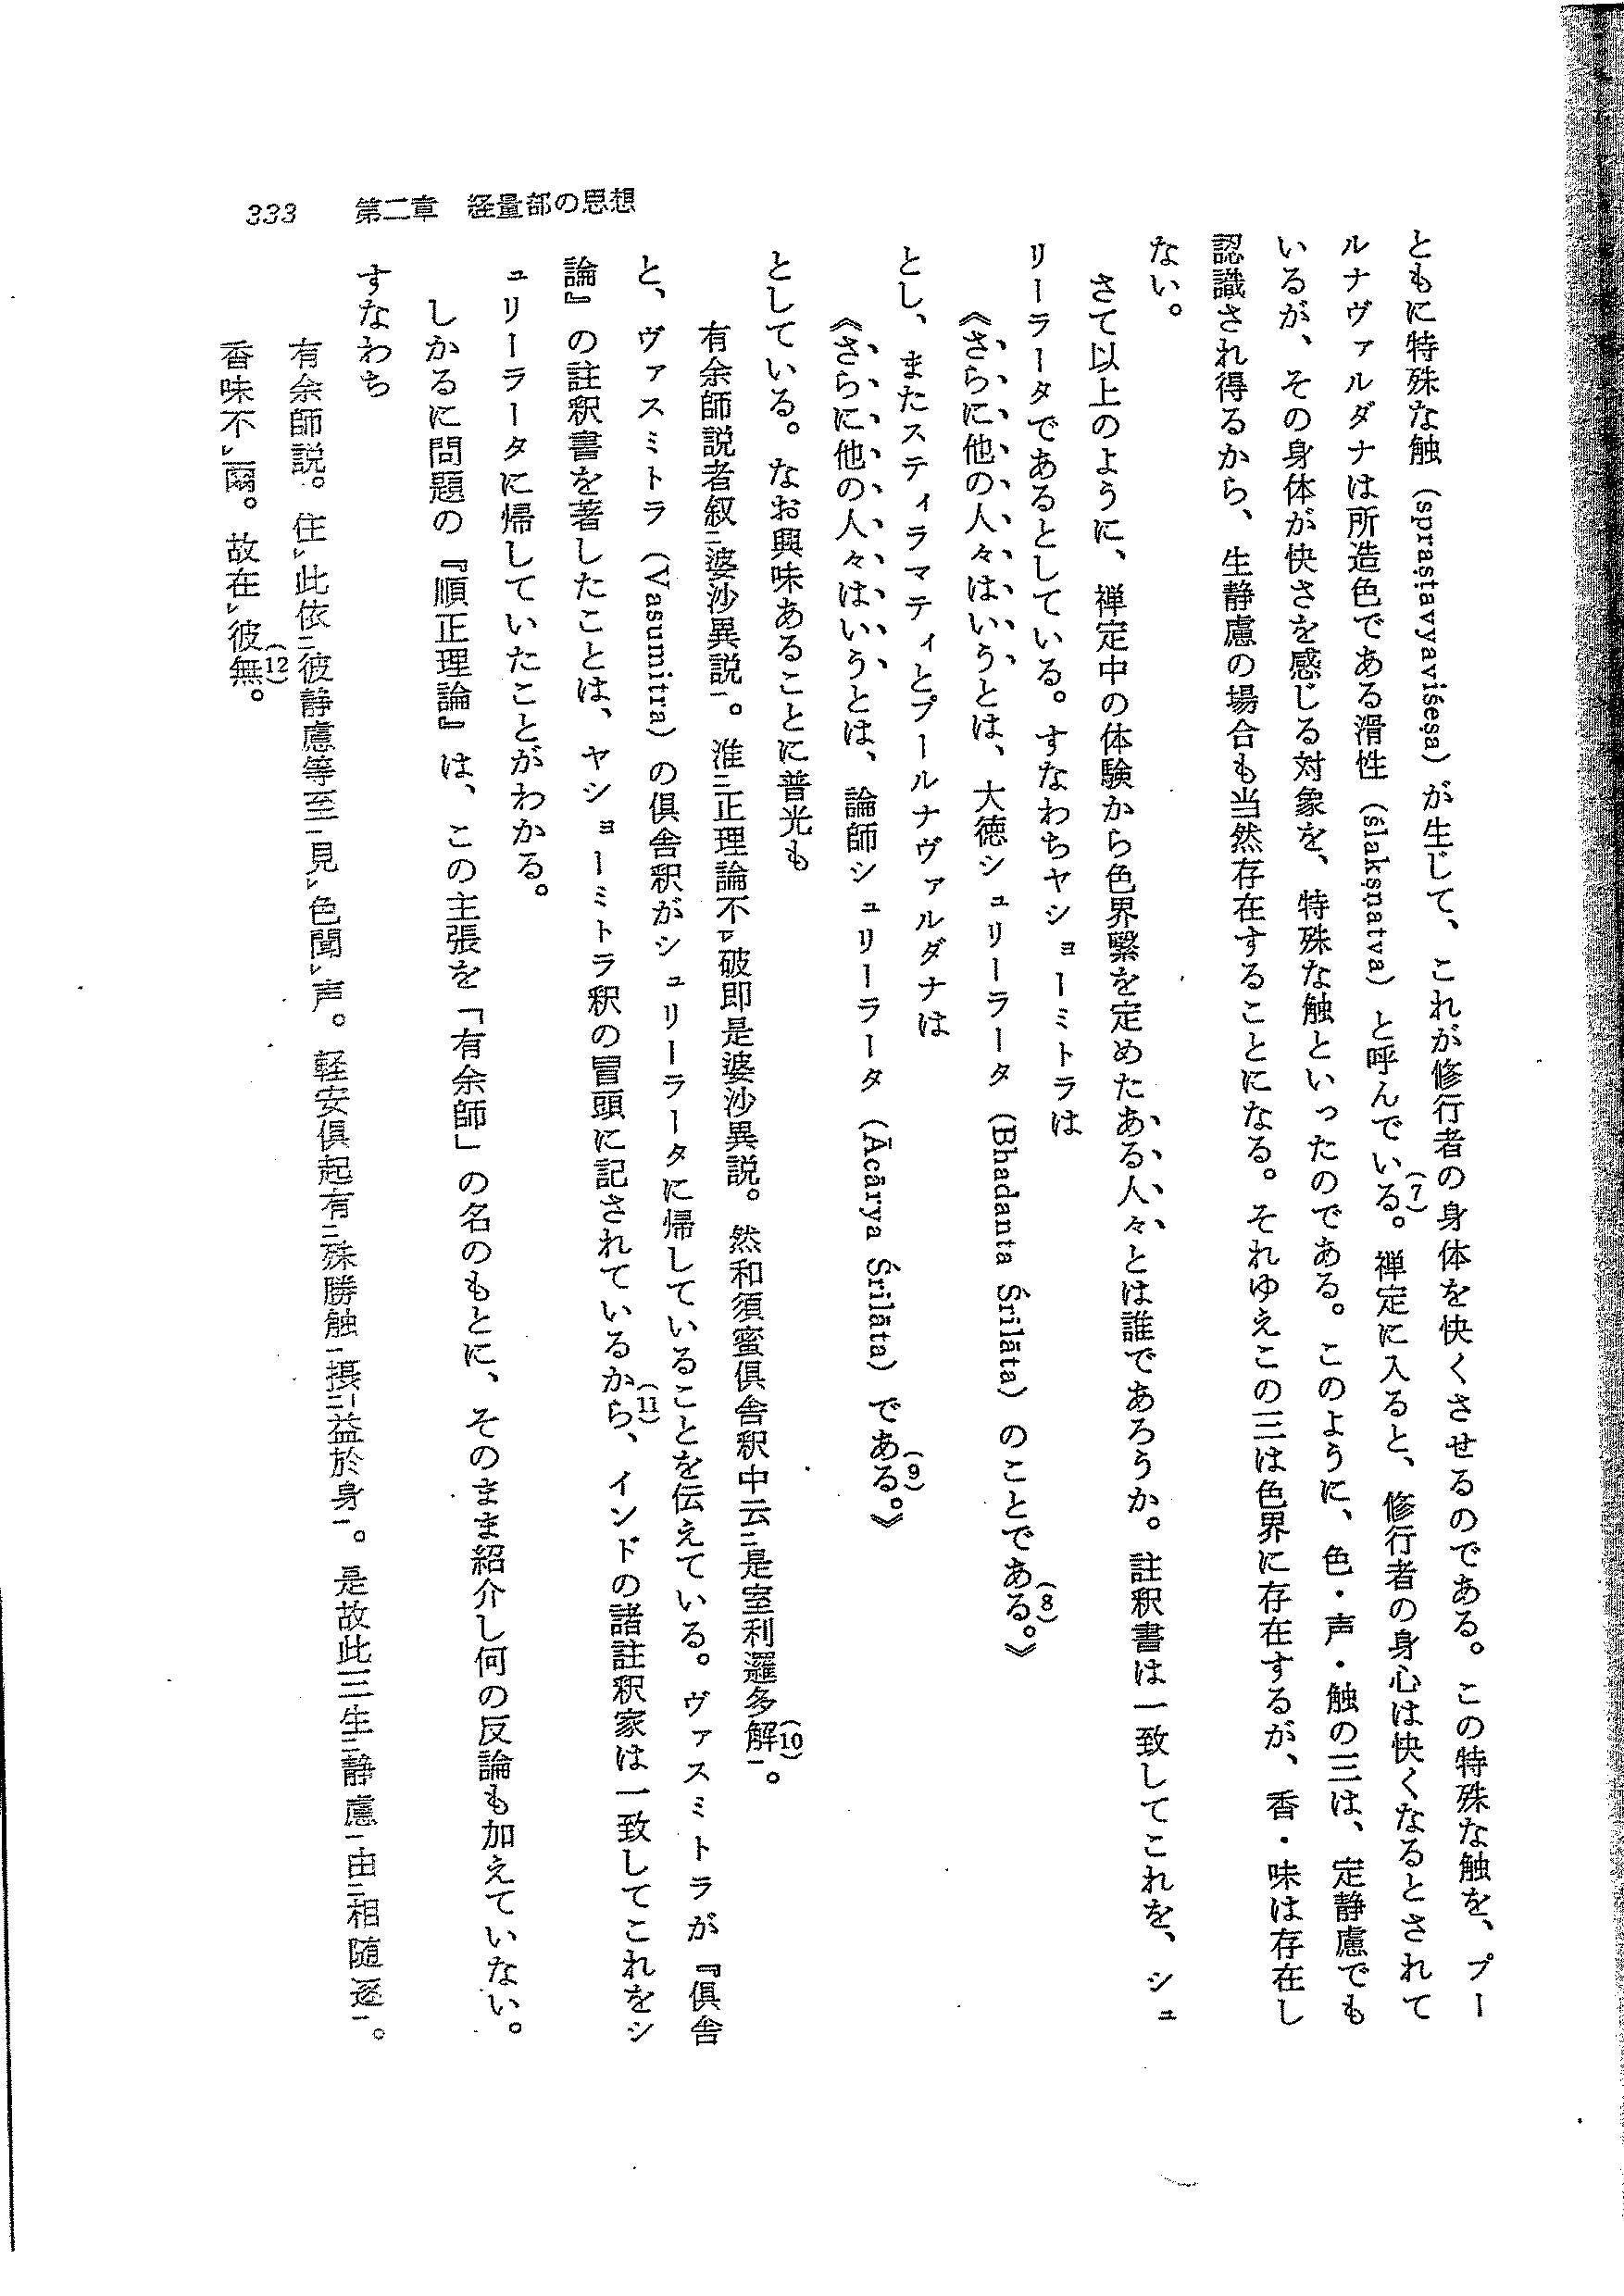 333　第二章　経量部の思想
ともに特殊な触（spraṣṭavyaviśeṣa）が生じて、これが修行者の身体を快くさせるのである。この特殊な触を、プー
ルナヴァルダナは所造色である滑性（ślakṣṇatva）と呼んでいる。(7)禅定に入ると、修行者の身心は快くなるとされて
いるが、その身体が快さを感じる対象を、特殊な触といったのである。このように、色・声・触の三は、定静慮でも
認識され得るから、生静慮の場合も当然存在することになる。それゆえこの三は色界に存在するが、香・味は存在し
ない。
さて以上のように、禅定中の体験から色界繋を定めたある人々とは誰であろうか。註釈書は一致してこれを、シュ
リーラータであるとしている。すなわちヤショーミトラは
《さらに他の人々はいうとは、大徳シュリーラータ（Bhadanta Śrīlāta）のことである。(8)》
とし、またスティラマティとプールナヴァルダナは
《さらに他の人々はいうとは、論師シュリーラータ（Ācārya Śrīlāta）である。(9)》
としている。なお興味あることに普光も
有余師説者叙㆓婆沙異説㆒。准㆓正理論不㆑破即是婆沙異説。然和須蜜倶舎釈中云㆓是室利邏多解㆒。(10)
と、ヴァスミトラ（Vasumitra）の倶舎釈がシュリーラータに帰していることを伝えている。ヴァスミトラが『倶舎
論』の註釈書を著したことは、ヤショーミトラ釈の冒頭に記されているから、(11)インドの諸註釈家は一致してこれをシ
ュリーラータに帰していたことがわかる。
しかるに問題の『順正理論』は、この主張を「有余師」の名のもとに、そのまま紹介し何の反論も加えていない。
すなわち
有余師説。住㆑此依㆓彼静慮等至㆒見㆑色聞㆑声。軽安倶起有㆓殊勝触㆒摂㆓益於身㆒。是故此三生㆓静慮㆒由㆓相随逐㆒。
香味不㆑爾。故在㆑彼無。(12)